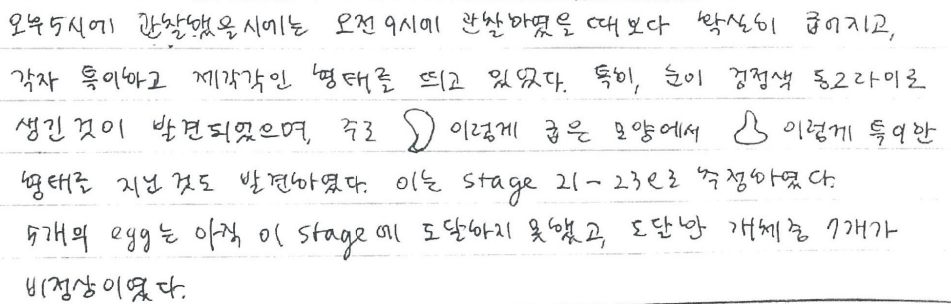 오후 5시에 관찰했을 시에는 오전 9시에 관찰하였을 때 보다 확실히 굽어지고,
각자 특이하고 제각각인 형태를 띄고 있었다. 특히, 눈이 검정색 동그라미로
생긴 것이 발견되었으며, 주로 이렇게 굽은 모양에서 이렇게 특이한
형태로 지닌 것도 발견하였다. 이는 stage 21-23으로 추정하였다.
5개의 egg는 아직 이 stage에 도달하지 못했고, 도달한 개체중 7개가
비정상이였다.